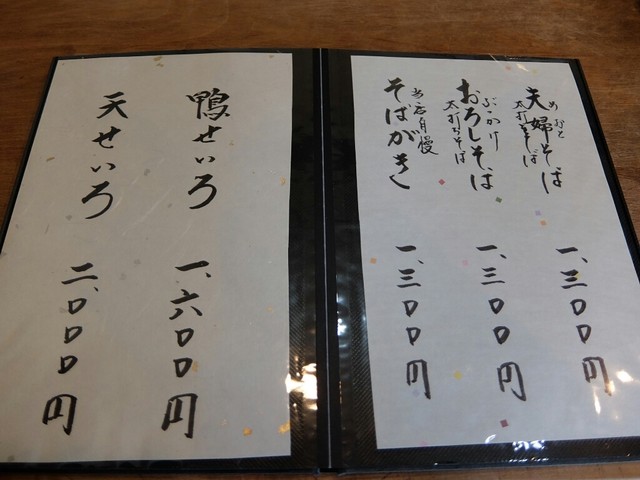 めおと
夫婦そば
太打ちそば
一、三〇〇円
ぶっかけ
おろしそば
太打ちそば
一、三〇〇円
当店自慢
そばがき
一、三〇〇円
鴨せいろ
一、六〇〇円
天せいろ
二、〇〇〇円